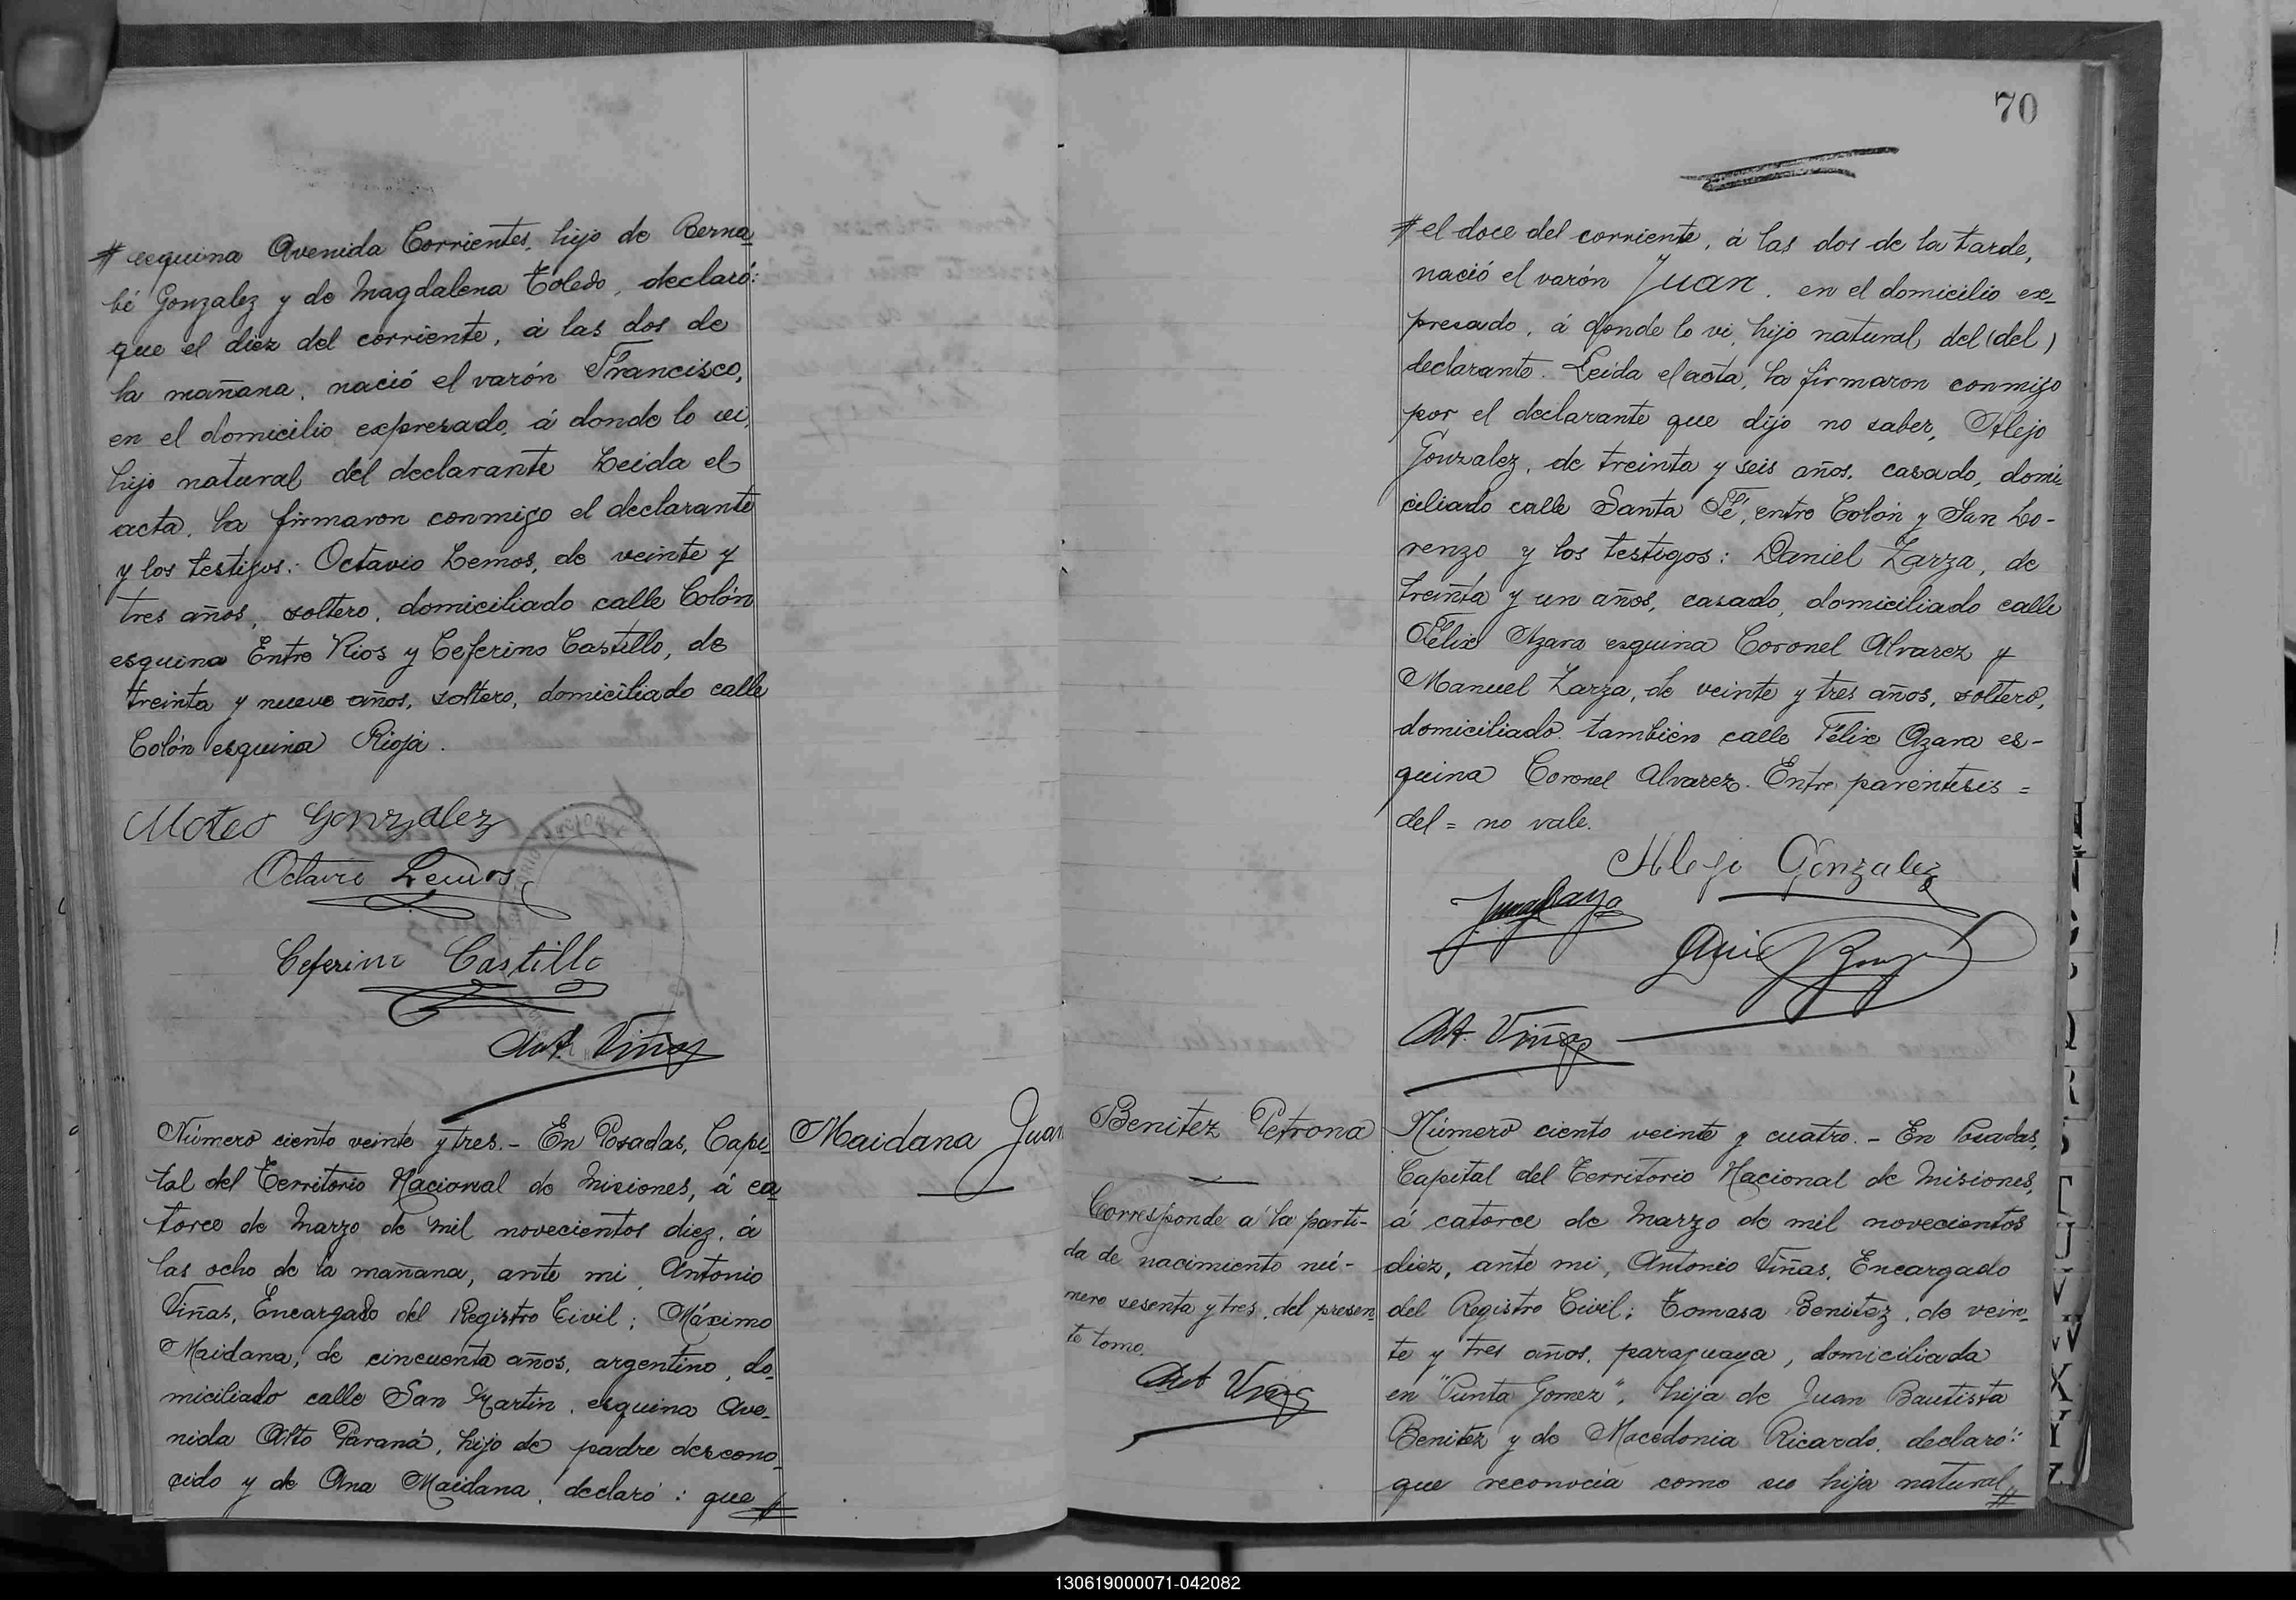 # esquina Avenida Corrientes, hijo de Berna-
bé Gonzalez y de Magdalena Toledo, declaró:
que el diez del corriente, á las dos de
la mañana, nació el varón Francisco,
en el domicilio expresado, á donde lo vi,
hijo natural del declarante Leida el
acta, la firmaron conmigo el declarante
y los testigos: Octavio Lemos, de veinte y
tres años, soltero, domiciliado calle Colón
esquina Entre Rios y Ceferino Castillo, de
treinta y nueve años, soltero, domiciliado calle
Colón esquina Rioja.
Mateo Gonzalez
Octavio Lemos
Ceferino Castillo
Ant. Viñas
Número ciento veinte y tres.- En Posadas, Capi-
tal del Territorio Nacional de Misiones, á ca-
torce de Marzo de mil novecientos diez, á
las ocho de la mañana, ante mi, Antonio
Viñas, Encargado del Registro Civil; Máximo
Maidana, de cincuenta años, argentino, do-
miciliado calle San Martin, esquina Ave-
nida Alto Paraná, hijo de padre descono-
cido y de Ana Maidana, declaró: que #
Maidana Juan
70
# el doce del corriente, á las dos de la tarde,
nació el varón Juan, en el domicilio ex-
presado, á donde lo vi, hijo natural del (del)
declarante. Leida el acta, la firmaron conmigo
por el declarante que dijo no saber, Alejo
Gonzalez, de treinta y seis años, casado, domi-
ciliado calle Santa Fé, entre Colón y San Lo-
renzo y los testigos: Daniel Zarza, de
treinta y un años, casado, domiciliado calle
Félix Azara esquina Coronel Alvarez y
Manuel Zarza, de veinte y tres años, soltero,
domiciliado tambien calle Félix Azara es-
quina Coronel Alvarez. Entre parentesis =
del = no vale.
Alejo Gonzalez
Ant. Viñas
Benitez Petrona
Corresponde á la parti-
da de nacimiento nú-
mero sesenta y tres, del presen-
te tomo.
Ant Viñas
Número ciento veinte y cuatro.- En Posadas,
Capital del Territorio Nacional de Misiones,
á catorce de Marzo de mil novecientos
diez, ante mi, Antonio Viñas, Encargado
del Registro Civil; Tomasa Benitez, de vein-
te y tres años, paraguaya, domiciliada
en "Punta Gomez", hija de Juan Bautista
Benitez y de Macedonia Ricardo, declaró:
que reconocia como su hija natural #
130619000071-042082